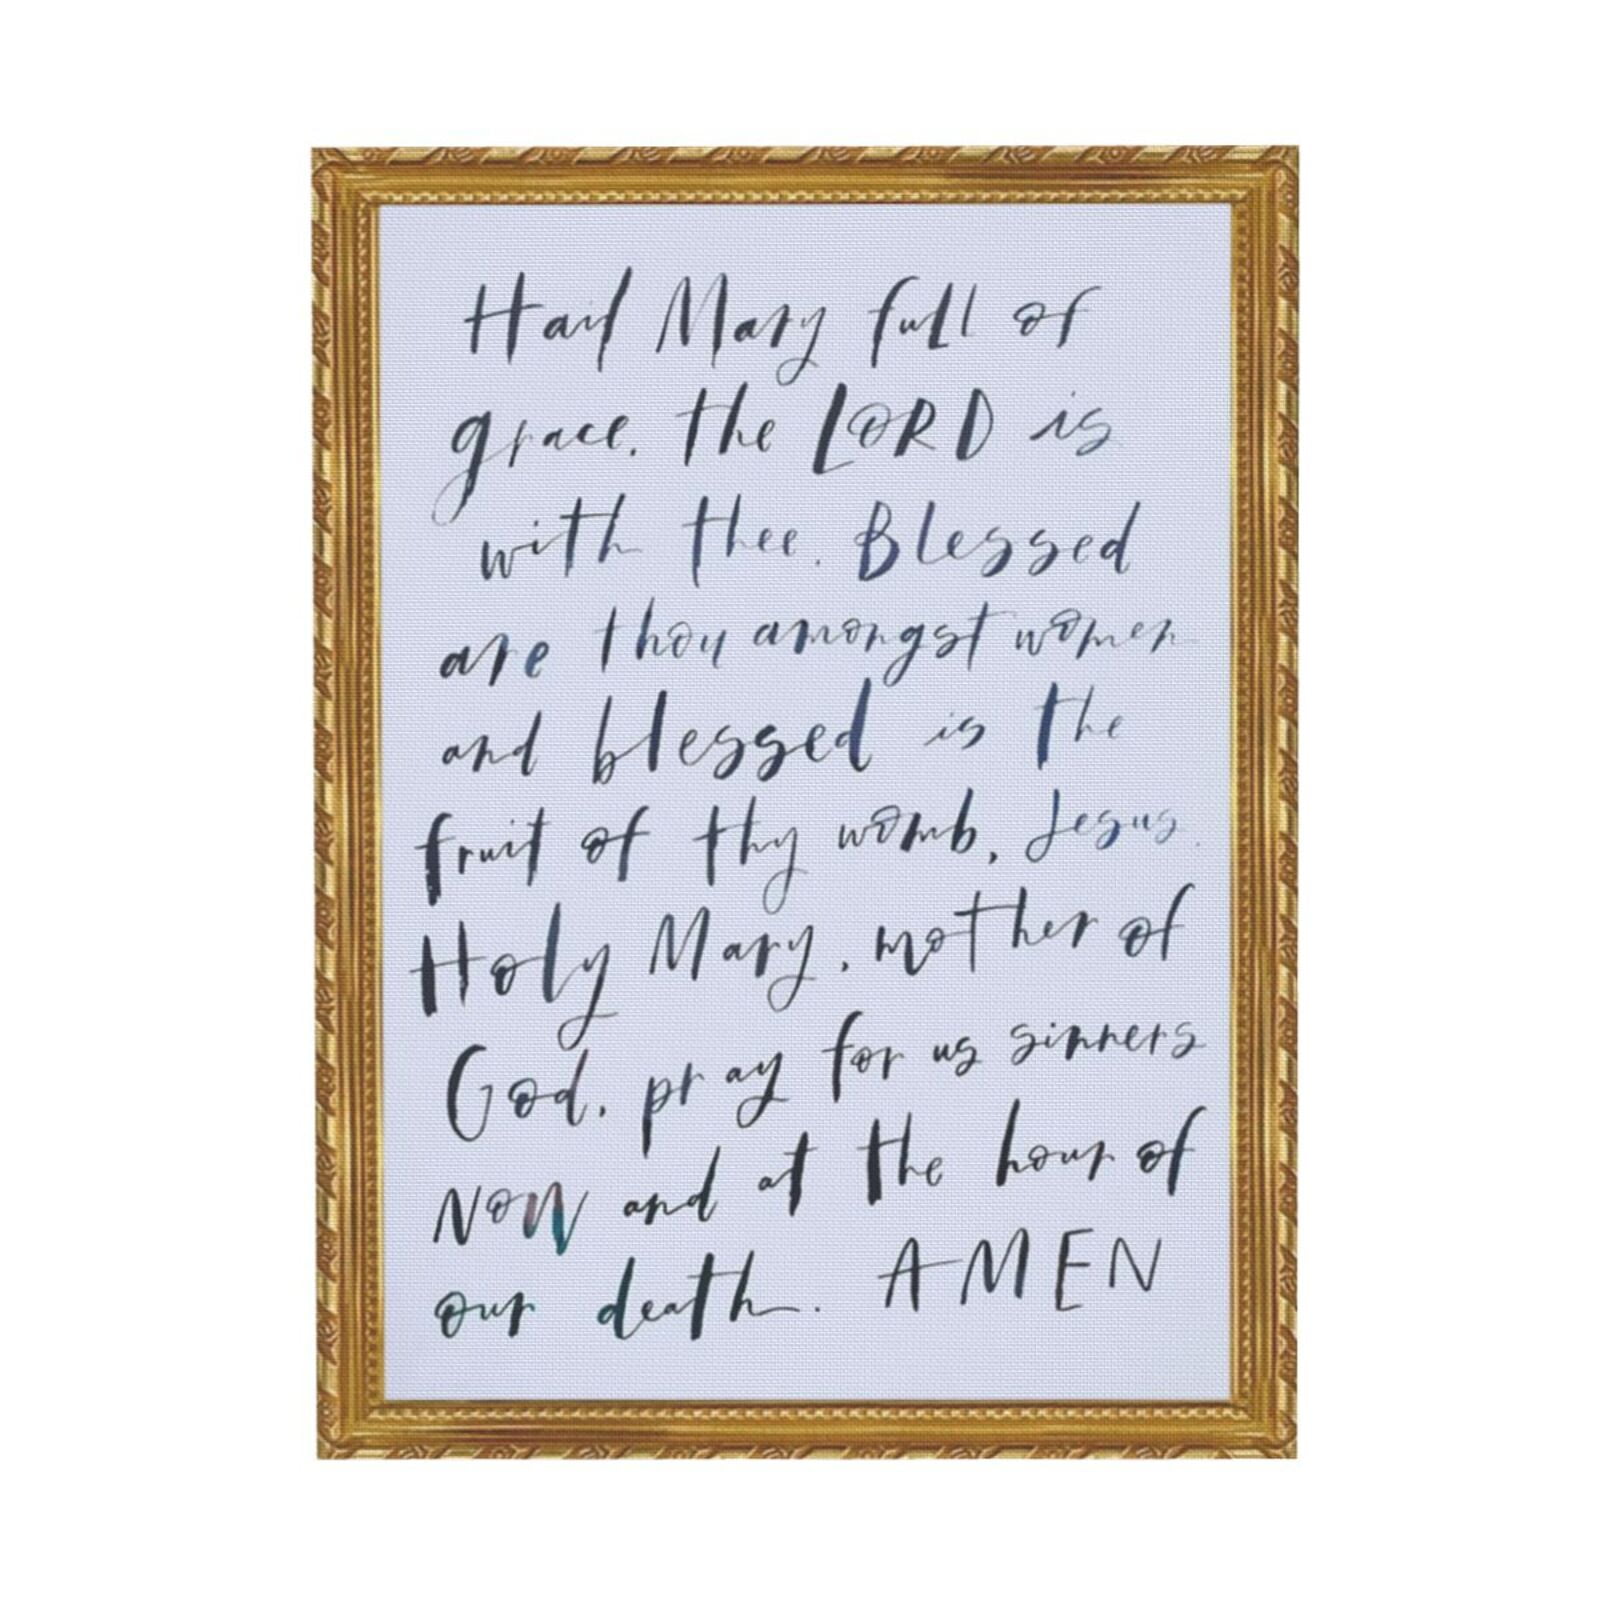 Hail Mary full of
grace. the LORD is
with thee. Blessed
are thou amongst women
and blessed is the
fruit of thy womb, Jesus.
Holy Mary, mother of
God, pray for us sinners
NOW and at the hour of
our death. AMEN